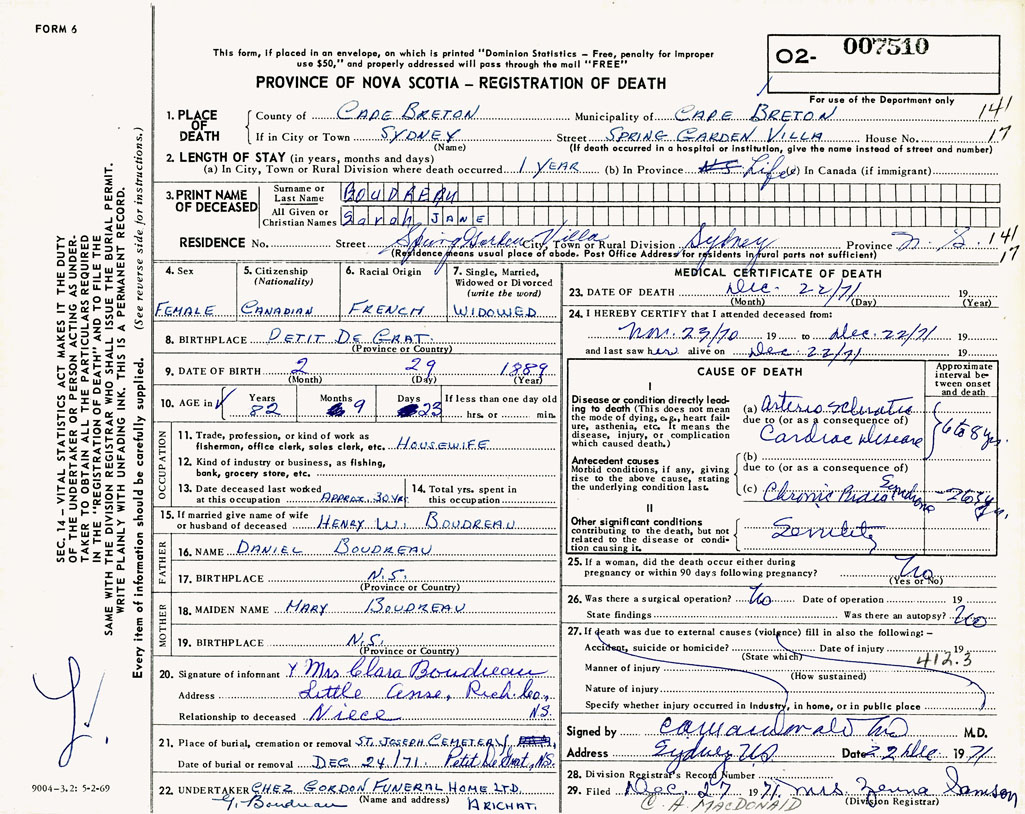 FORM 6
This form, if placed in an envelope, on which is printed "Dominion Statistics – Free, penalty for improper
use $50," and properly addressed will pass through the mail "FREE"
PROVINCE OF NOVA SCOTIA – REGISTRATION OF DEATH
O2- 007510
For use of the Department only
1. PLACE OF DEATH
County of CAPE BRETON Municipality of CAPE BRETON 141
If in City or Town SYDNEY Street SPRING GARDEN VILLA House No. 17
(Name) (If death occurred in a hospital or institution, give the name instead of street and number)
2. LENGTH OF STAY (in years, months and days)
(a) In City, Town or Rural Division where death occurred 1 YEAR (b) In Province Life (c) In Canada (if immigrant)
3. PRINT NAME OF DECEASED
Surname or Last Name BOUDREAU
All Given or Christian Names Sarah JANE
RESIDENCE No. Street Spring Garden Villa City, Town or Rural Division Sydney Province N.S. 141
(Residence means usual place of abode. Post Office Address for residents in rural parts not sufficient) 17
4. Sex FEMALE
5. Citizenship (Nationality) CANADIAN
6. Racial Origin FRENCH
7. Single, Married, Widowed or Divorced (write the word) WIDOWED
8. BIRTHPLACE PETIT DE GRAT
(Province or Country)
9. DATE OF BIRTH 2 29 1889
(Month) (Day) (Year)
10. AGE in Years 82 Months 9 Days 23 If less than one day old hrs. or min.
OCCUPATION
11. Trade, profession, or kind of work as
fisherman, office clerk, sales clerk, etc. HOUSEWIFE
12. Kind of industry or business, as fishing,
bank, grocery store, etc.
13. Date deceased last worked
at this occupation APPROX. 30 YRS
14. Total yrs. spent in
this occupation
15. If married give name of wife
or husband of deceased HENRY W. BOUDREAU
FATHER
16. NAME DANIEL BOUDREAU
17. BIRTHPLACE N.S.
(Province or Country)
MOTHER
18. MAIDEN NAME MARY BOUDREAU
19. BIRTHPLACE N.S.
(Province or Country)
20. Signature of informant X Mrs Clara Boudreau
Address Little Anse, Rich. Co., N.S.
Relationship to deceased Niece
21. Place of burial, cremation or removal ST. JOSEPH CEMETERY
Date of burial or removal DEC. 24/71 Petit De Grat, N.S.
22. UNDERTAKER CHEZ GORDON FUNERAL HOME LTD.
(Name and address) ARICHAT.
G. Boudreau
MEDICAL CERTIFICATE OF DEATH
23. DATE OF DEATH Dec. 22/71 19
(Month) (Day) (Year)
24. I HEREBY CERTIFY that I attended deceased from:
Nov. 23/70 19 to Dec. 22/71
and last saw her alive on Dec 22/71 19
CAUSE OF DEATH
Approximate interval between onset and death
I
Disease or condition directly leading to death (This does not mean the mode of dying, e.g., heart failure, asthenia, etc. It means the disease, injury, or complication which caused death.)
(a) Arterio sclerotic
due to (or as a consequence of)
Cardiac disease 6 to 8 yrs.
Antecedent causes
Morbid conditions, if any, giving rise to the above cause, stating the underlying condition last.
(b)
due to (or as a consequence of)
(c) Chronic Brain Syndrome
II
Other significant conditions
contributing to the death, but not related to the disease or condition causing it.
Senility
25. If a woman, did the death occur either during
pregnancy or within 90 days following pregnancy? No
(Yes or No)
26. Was there a surgical operation? No Date of operation 19
State findings Was there an autopsy? No
27. If death was due to external causes (violence) fill in also the following:–
Accident, suicide or homicide? Date of injury 19
(State which) 412.3
Manner of injury
(How sustained)
Nature of injury
Specify whether injury occurred in industry, in home, or in public place
Signed by M.D.
Address Sydney N.S. Date 22 Dec 1971
28. Division Registrar's Record Number
29. Filed Dec. 27 1971 Mrs. Zenna Samson
(Division Registrar)
C. A MACDONALD
SEC. 14 – VITAL STATISTICS ACT MAKES IT THE DUTY
OF THE UNDERTAKER OR PERSON ACTING AS UNDER-
TAKER TO OBTAIN ALL THE PARTICULARS REQUIRED
IN THE "REGISTRATION OF DEATH" AND TO FILE THE
SAME WITH THE DIVISION REGISTRAR WHO SHALL ISSUE THE BURIAL PERMIT.
WRITE PLAINLY WITH UNFADING INK. THIS IS A PERMANENT RECORD.
Every item of information should be carefully supplied. (See reverse side for instructions.)
9004-3.2: 5-2-69